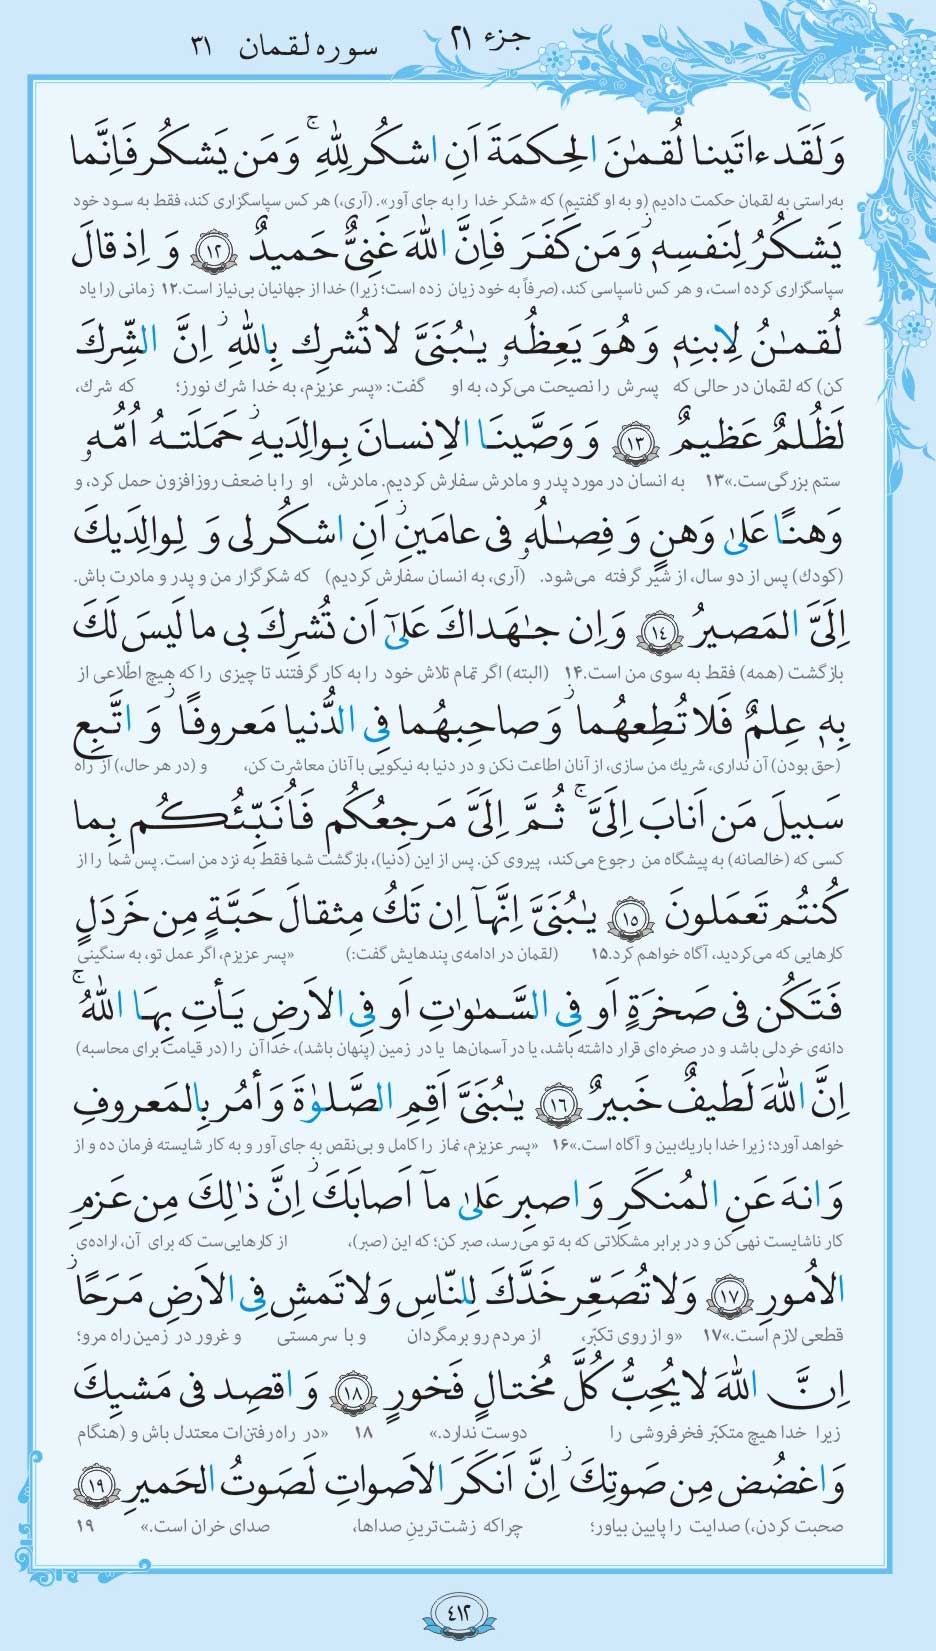 جزء ۲۱
سوره لقمان ۳۱
وَلَقَد ءاتَینا لُقمٰنَ الحِکمَةَ اَنِ اشکُر لِلّٰهِ ۚ وَمَن یَشکُر فَاِنَّما
به‌راستی به لقمان حکمت دادیم (و به او گفتیم) که «شکر خدا را به جای آور». (آری،) هر کس سپاسگزاری کند، فقط به سود خود
یَشکُرُ لِنَفسِهٖ ز وَمَن کَفَرَ فَاِنَّ اللّٰهَ غَنِیٌّ حَمیدٌ ۱۲ وَ اِذ قالَ
سپاسگزاری کرده است، و هر کس ناسپاسی کند، (صرفاً به خود زیان زده است؛ زیرا) خدا از جهانیان بی‌نیاز است.۱۲ زمانی (را یاد
لُقمـٰنُ لِابنِهٖ وَهُوَ یَعِظُهٗ یـٰبُنَیَّ لا تُشرِك بِاللّٰهِ ز اِنَّ الشِّركَ
کن) که لقمان در حالی که پسرش را نصیحت می‌کرد، به او گفت: «پسر عزیزم، به خدا شرك نورز؛ که شرك،
لَظُلمٌ عَظیمٌ ۱۳ وَ وَصَّینَا الاِنسانَ بِوالِدَیهِ ز حَمَلَتهُ اُمُّهٗ
ستم بزرگی‌ست.»۱۳ به انسان در مورد پدر و مادرش سفارش کردیم. مادرش، او را با ضعف روزافزون حمل کرد، و
وَهنًا عَلیٰ وَهنٍ وَ فِصـٰلُهٗ فی عامَینِ ز اَنِ اشکُر لی وَ لِوالِدَیكَ
(کودك) پس از دو سال، از شیر گرفته می‌شود. (آری، به انسان سفارش کردیم) که شکرگزار من و پدر و مادرت باش.
اِلَیَّ المَصیرُ ۱۴ وَاِن جـٰهَداكَ عَلیٰٓ اَن تُشرِكَ بی ما لَیسَ لَكَ
بازگشت (همه) فقط به سوی من است.۱۴ (البته) اگر تمام تلاش خود را به کار گرفتند تا چیزی را که هیچ اطّلاعی از
بِهٖ عِلمٌ فَلا تُطِعهُما ز وَ صاحِبهُما فِی الدُّنیا مَعروفًا ز وَ اتَّبِع
(حق بودن) آن نداری، شریك من سازی، از آنان اطاعت نکن و در دنیا به نیکویی با آنان معاشرت کن، و (در هر حال،) از راه
سَبیلَ مَن اَنابَ اِلَیَّ ۚ ثُمَّ اِلَیَّ مَرجِعُکُم فَاُنَبِّئُکُم بِما
کسی که (خالصانه) به پیشگاه من رجوع می‌کند، پیروی کن. پس از این (دنیا)، بازگشت شما فقط به نزد من است. پس شما را از
کُنتُم تَعمَلونَ ۱۵ یـٰبُنَیَّ اِنَّهآ اِن تَكُ مِثقالَ حَبَّةٍ مِن خَردَلٍ
کارهایی که می‌کردید، آگاه خواهم کرد.۱۵ (لقمان در ادامه‌ی پندهایش گفت:) «پسر عزیزم، اگر عمل تو، به سنگینی
فَتَکُن فی صَخرَةٍ اَو فِی السَّمـٰوٰتِ اَو فِی الاَرضِ یَأتِ بِهَا اللّٰهُ ۚ
دانه‌ی خردلی باشد و در صخره‌ای قرار داشته باشد، یا در آسمان‌ها یا در زمین (پنهان باشد)، خدا آن را (در قیامت برای محاسبه)
اِنَّ اللّٰهَ لَطیفٌ خَبیرٌ ۱۶ یـٰبُنَیَّ اَقِمِ الصَّلوٰةَ وَ أمُر بِالمَعروفِ
خواهد آورد؛ زیرا خدا باریك‌بین و آگاه است.»۱۶ «پسر عزیزم، نماز را کامل و بی‌نقص به جای آور و به کار شایسته فرمان ده و از
وَ انهَ عَنِ المُنکَرِ وَ اصبِر عَلیٰ مآ اَصابَكَ ز اِنَّ ذٰلِكَ مِن عَزمِ
کار ناشایست نهی کن و در برابر مشکلاتی که به تو می‌رسد، صبر کن؛ که این (صبر)، از کارهایی‌ست که برای آن، اراده‌ی
الاُمورِ ۱۷ وَلا تُصَعِّر خَدَّكَ لِلنّاسِ وَلا تَمشِ فِی الاَرضِ مَرَحًا ز
قطعی لازم است.»۱۷ «و از روی تکبّر، از مردم رو برمگردان و با سرمستی و غرور در زمین راه مرو؛
اِنَّ اللّٰهَ لا یُحِبُّ کُلَّ مُختالٍ فَخورٍ ۱۸ وَ اقصِد فی مَشیِكَ
زیرا خدا هیچ متکبّر فخرفروشی را دوست ندارد.» ۱۸ «در راه رفتن‌ات معتدل باش و (هنگام
وَ اغضُض مِن صَوتِكَ ز اِنَّ اَنکَرَ الاَصواتِ لَصَوتُ الحَمیرِ ۱۹
صحبت کردن،) صدایت را پایین بیاور؛ چراکه زشت‌ترینِ صداها، صدای خران است.» ۱۹
۴۱۲